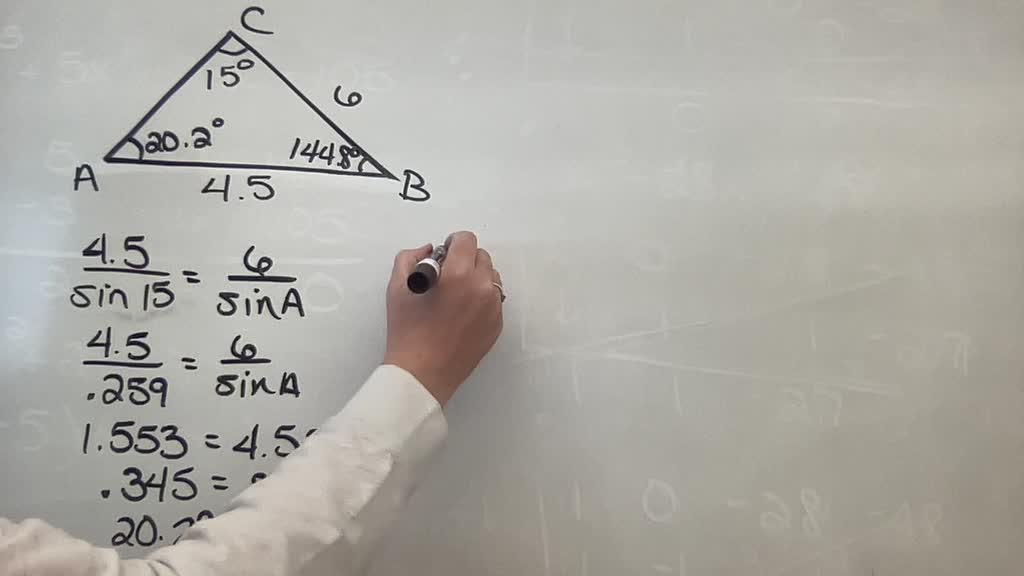 C
15°
6
20.2°
144.8°
A
4.5
B
4.5/sin 15 = 6/sinA
4.5/.259 = 6/sinA
1.553 = 4.5
.345 =
20.2